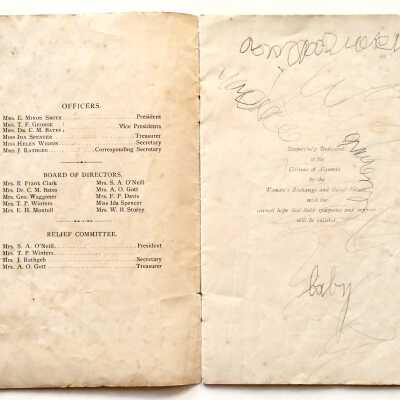 OFFICERS.
Mrs. E. Minor Smith President
Mrs. T. F. George
Mrs. Dr. C. M. Bates Vice Presidents
Miss Ida Spencer Treasurer
Miss Helen Secretary
Mrs. J. Rathgeb Corresponding Secretary
BOARD OF DIRECTORS.
Mrs. R. Frank Clark Mrs. S. A. O'Neill
Mrs. Dr. C. M. Bates Mrs. A. O. Gott
Mrs. Geo. Waggoner Mrs. F. P. Davis
Mrs. T. P. Winters Miss Ida Spencer
Mrs. E. H. Mantell Mrs. W. B. Storey
RELIEF COMMITTEE.
Mrs. S. A. O'Neill President
Mrs. T. P. Winters
Mrs. J. Rathgeb Secretary
Mrs. A. O. Gott Treasurer
Respectfully Dedicated
to the
Citizens of Alameda
by the
Woman's Exchange and Relief
earnest hope that their sympathy and
will be enlisted
baby